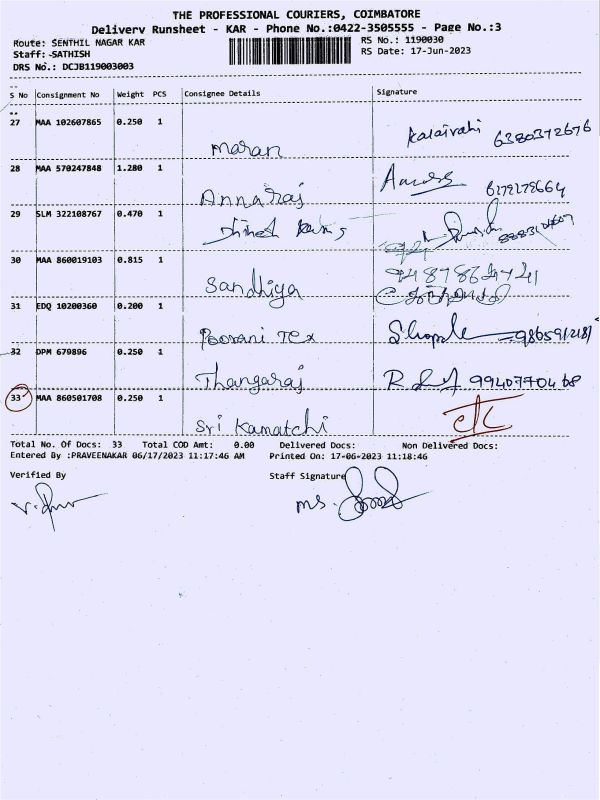 THE PROFESSIONAL COURIERS, COIMBATORE
Delivery Runsheet - KAR - Phone No.:0422-3505555 - Page No.:3
Route: SENTHIL NAGAR KAR
RS No.: 1190030
Staff:-SATHISH
RS Date: 17-Jun-2023
DRS No.: DCJB119003003
S No Consignment No Weight PCS Consignee Details Signature
27 MAA 102607865 0.250 1
Maran Kalaivahi 6380372676
28 MAA 570247848 1.280 1
Annaraj
29 SLM 322108767 0.470 1
30 MAA 860019103 0.815 1
Sandhiya
31 EDQ 10200360 0.200 1
Poorani Tex
32 DPM 679896 0.250 1
Thangaraj 9940770468
33 MAA 860501708 0.250 1
Sri Kamatchi
Total No. Of Docs: 33 Total COD Amt: 0.00 Delivered Docs: Non Delivered Docs:
Entered By :PRAVEENAKAR 06/17/2023 11:17:46 AM Printed On: 17-06-2023 11:18:46
Verified By Staff Signature
ms.